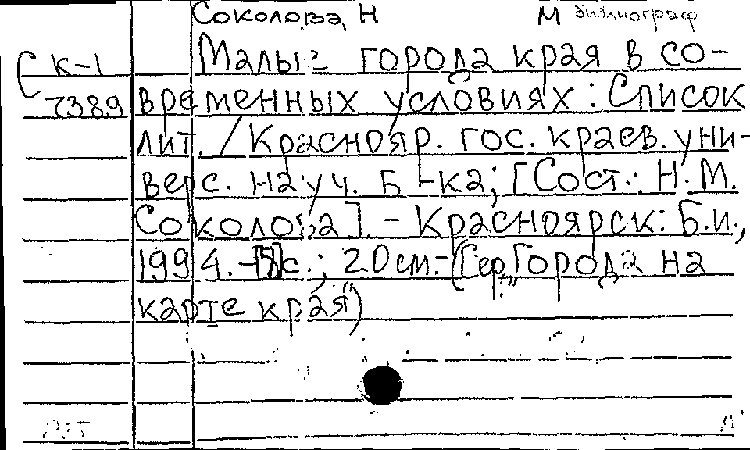 Соколова, Н М библиограф
С К-1 Малые города края в со-
7389 временных условиях: Список
лит. / Краснояр. гос. краев. уни-
верс. науч. Б-ка; [Сост.: Н.М.
Соколова]. - Красноярск: Б.и.,
1994. - с.; 20см. - (Сер. "Города на
карте края")